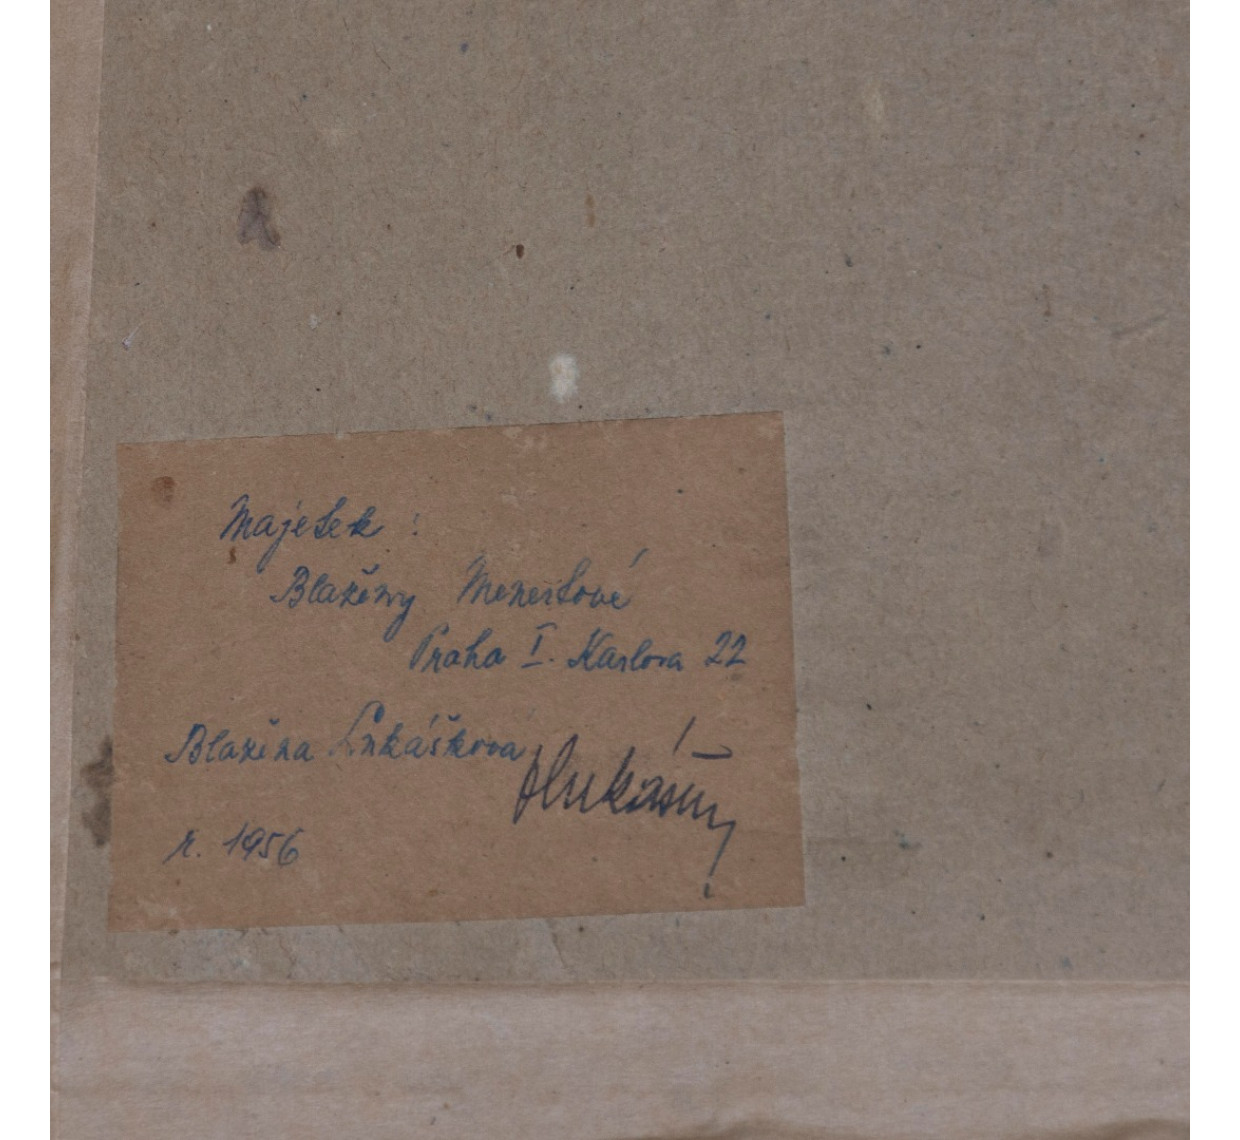 Majetek :
Blaženy Menertové
Praha I. Karlova 22
Blažena Lukášková
r. 1956